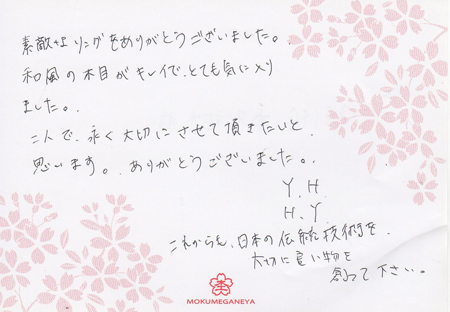 素敵なリングをありがとうございました。
和風の木目がキレイで、とても気に入り
ました。
二人で、永く大切にさせて頂きたいと
思います。ありがとうございました。
Y.H
H.Y
これからも、日本の伝統技術を、
大切に良い物を
創って下さい。
MOKUMEGANEYA